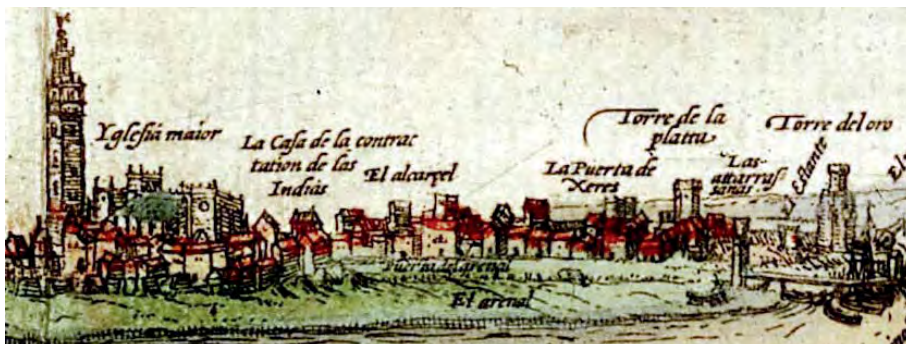 Yglesia maior
La Casa de la contrac
tation de las
Indias
El alcarçel
La Puerta de
Xeres
Torre de la
platta
Las
attarras
sanas
El Estante
Torre del oro
Puerta del arenal
El arenal